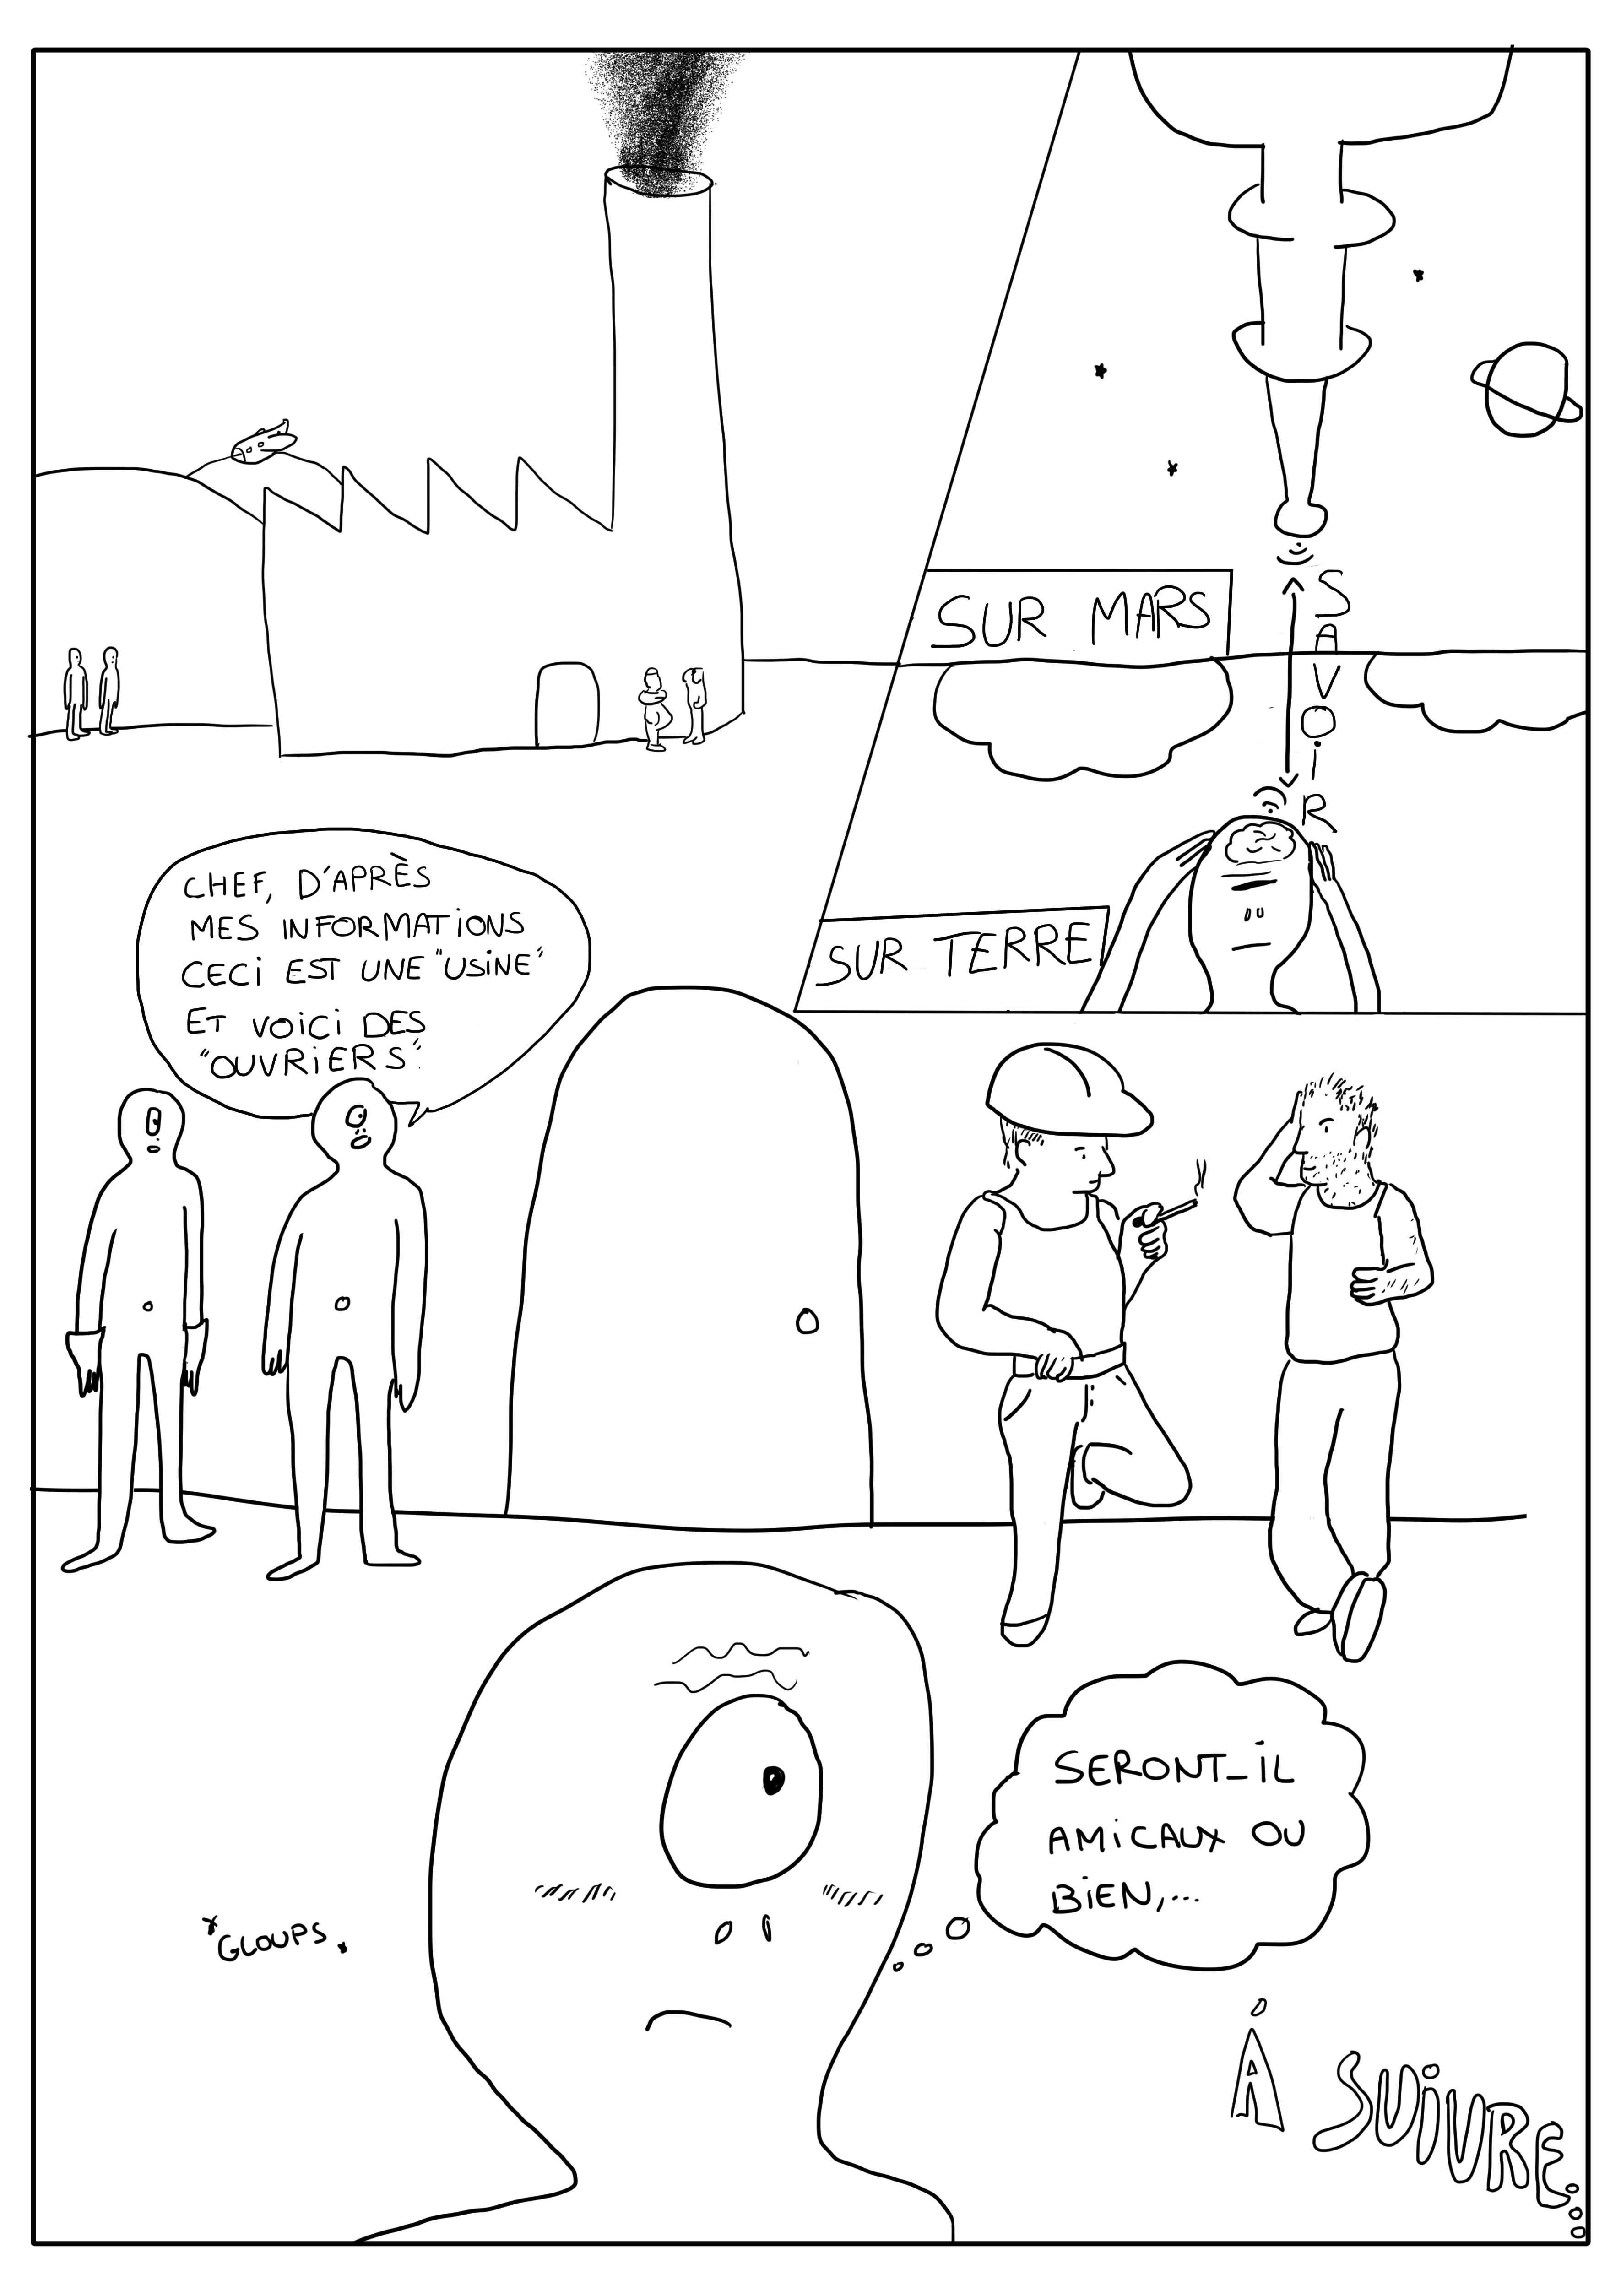 SUR MARS
SAVOiR
SUR TERRE
CHEF, D'APRÈS
MES INFORMATiONS
CECi EST UNE "USiNE"
ET VOiCi DES
"OUVRiERS".
SERONT-iL
AMiCAUX OU
BiEN,...
*GLOUPS*
À SUiVRE...